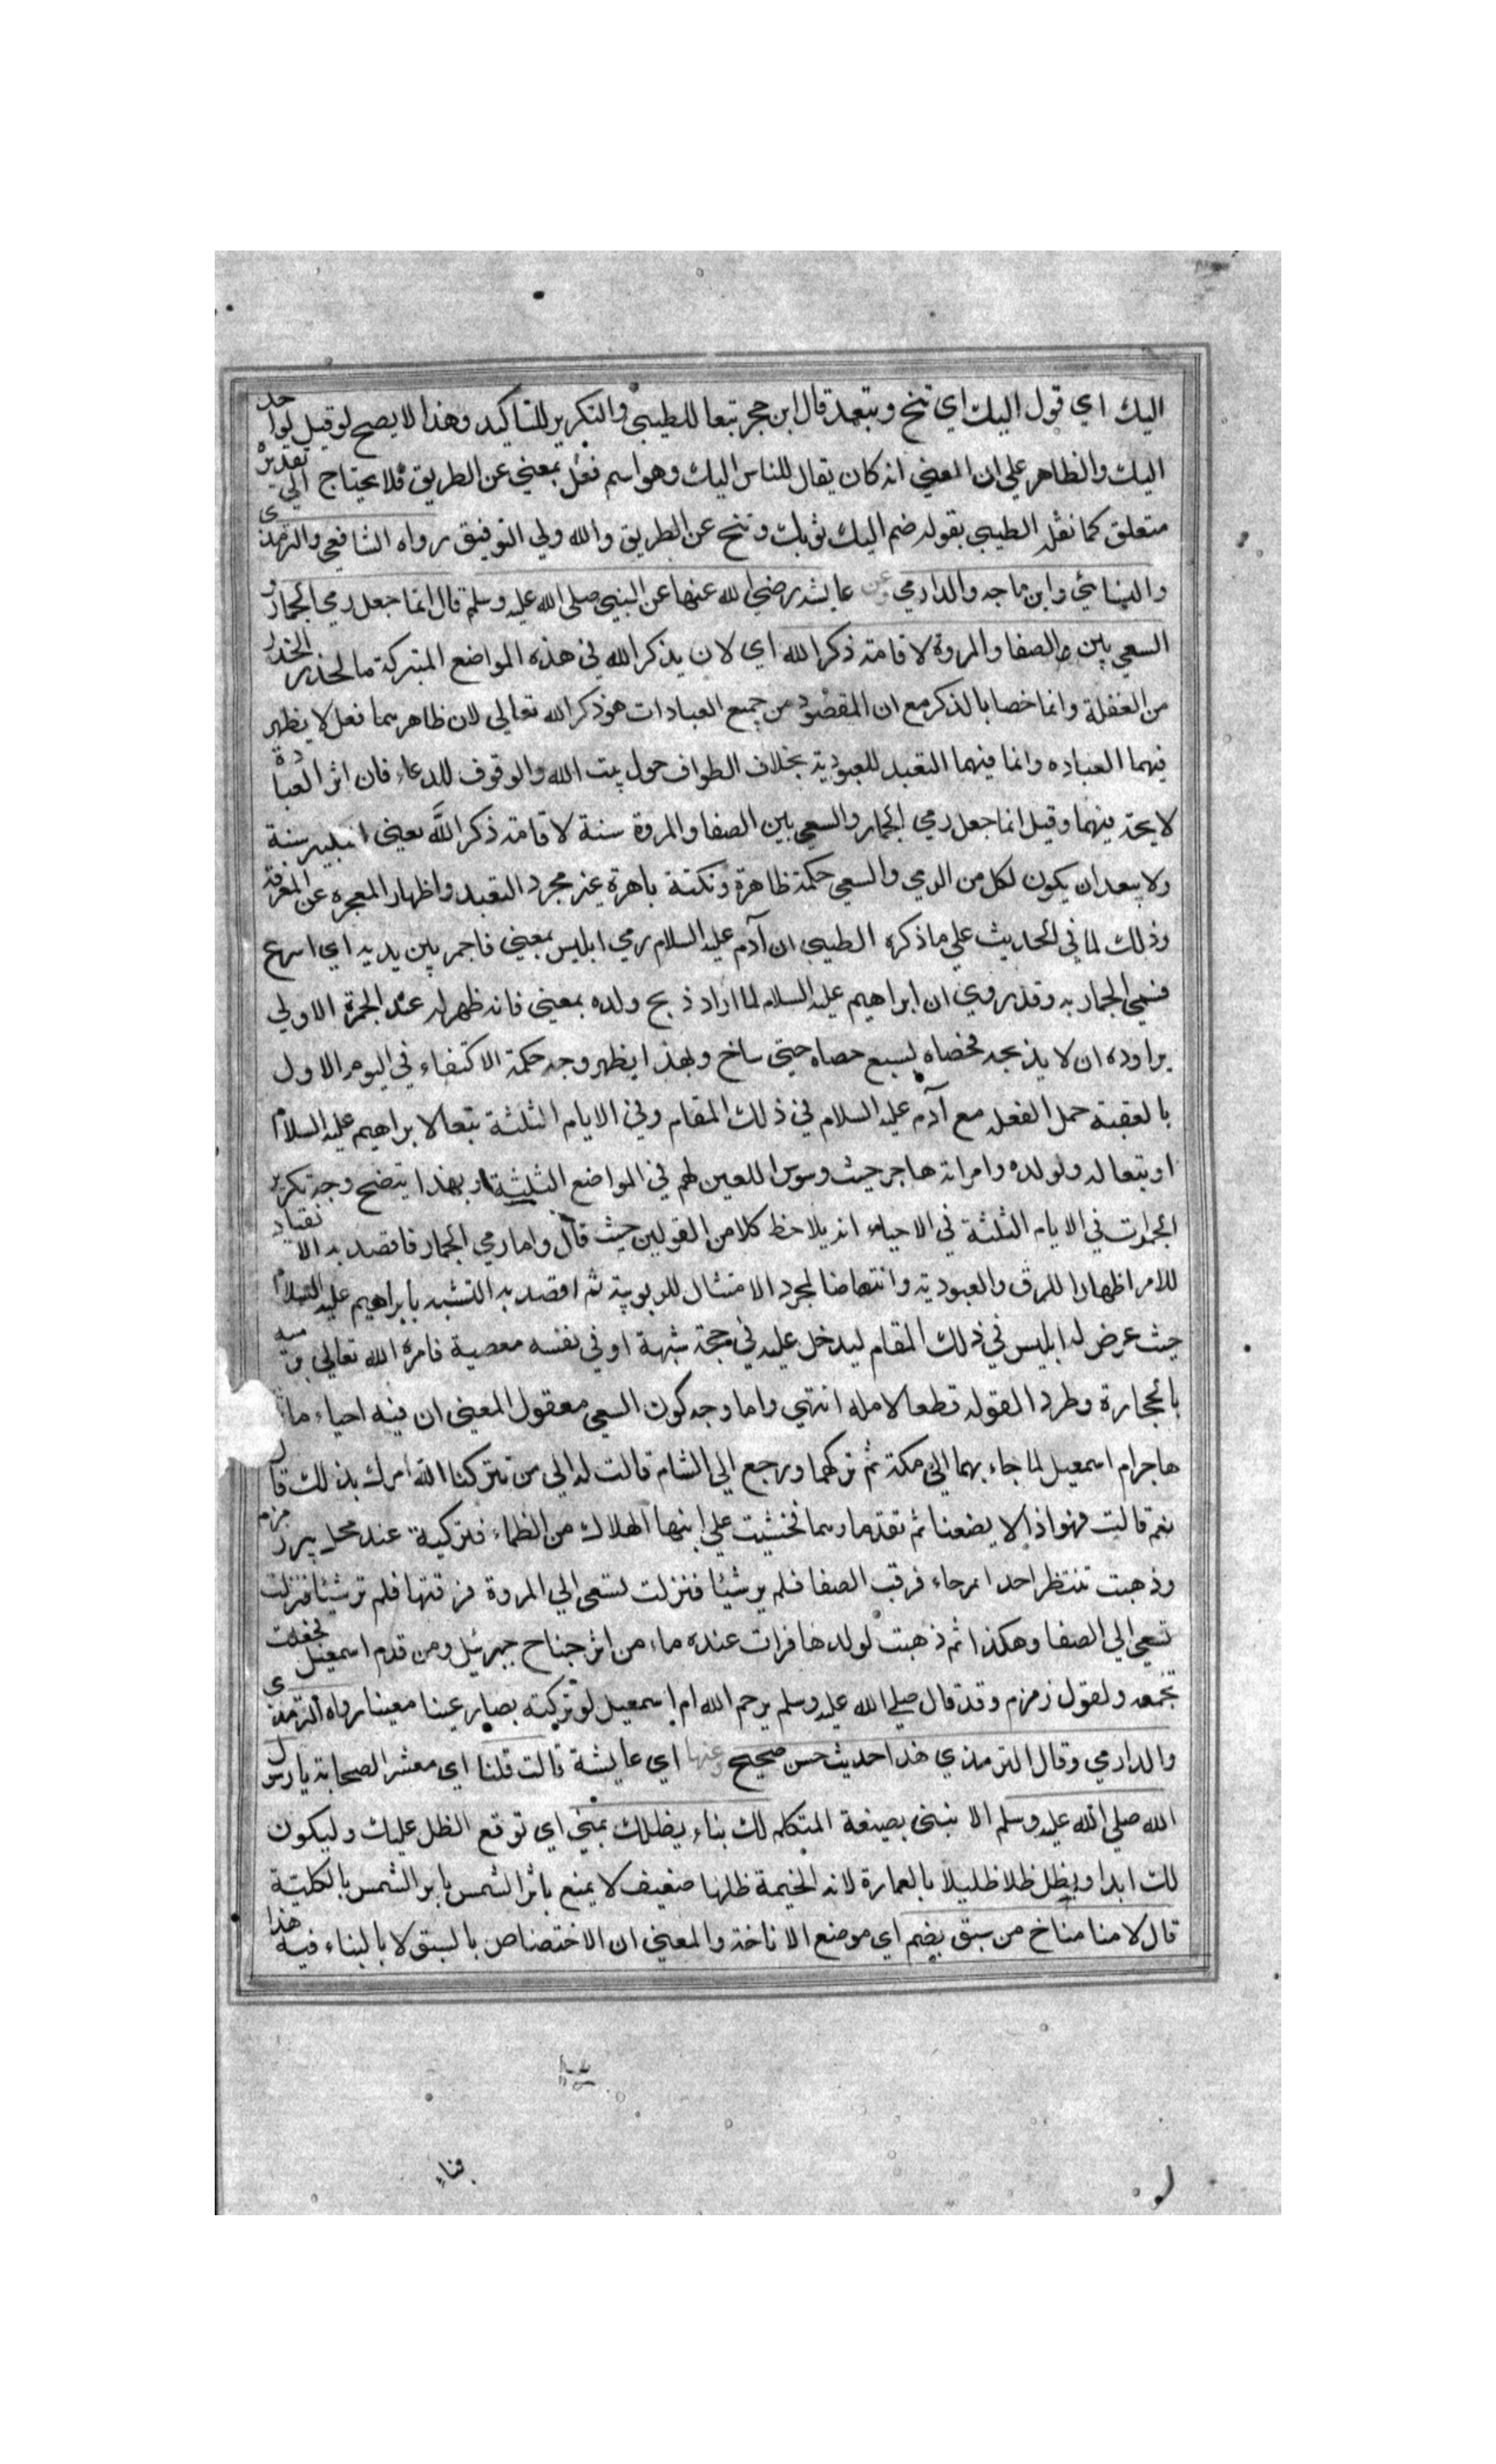 اليك اي قول اليك اي تنح وتبعد قال ابن حجر تبعا للطيبي والتكرير للتاكيد وهذا لا يصح لو قيل لواحد
اليك والظاهر علي ان المعني انه كان يقال للناس اليك وهو اسم فعل بمعني عن الطريق فلا يحتاج الي تقديره
متعلق كما نقل الطيبي بقوله ضم اليك ثوبك وتنح عن الطريق والله ولي التوفيق رواه الشافعي والترمذي
والنسائي وابن ماجه والدارمي وعن عايشه رضي الله عنها عن النبي صلي الله عليه وسلم قال انما جعل رمي الجمار و
السعي بين الصفا والمروة لاقامة ذكر الله اي لان يذكر الله في هذه المواضع المتبركة فالحذر الحذر
من الغفلة وانما خصا بالذكر مع ان المقصود من جميع العبادات هو ذكر الله تعالي لان ظاهرهما فعل لا يظهر
فيهما العباده وانما فيهما التعبد للعبودية بخلاف الطواف حول بيت الله والوقوف للدعاء فان اثر العبادة
لايحة فيهما وقيل انما جعل رمي الجمار والسعي بين الصفا والمروة سنة لاقامة ذكر الله يعني التكبير سنة
ولا يبعد ان يكون لكل من الرمي والسعي حكمة ظاهرة ونكتة باهرة غير مجرد التعبد واظهار المعجزه عن المعرفة
وذلك لما في الحديث علي ما ذكره الطيبي ان آدم عليه السلام رمي ابليس بمعني فاجمر بين يديه اي اسرع
فسمي الجمار به وقد روي ان ابراهيم عليه السلام لما اراد ذبح ولده بمعني فانه ظهر له عند الجمرة الاولي
يراوده ان لا يذبحه فحصاه بسبع حصاه حتي ساخ وبهذا يظهر وجه حكمة الاكتفاء في اليوم الاول
بالعقبة حمل الفعل مع آدم عليه السلام في ذلك المقام وفي الايام الثلثة تبعا لابراهيم عليه السلام
او تبعا له ولولده وامراته هاجر حيث وسوس اللعين لهم في المواضع الثلثة وبهذا يتضح وجه تكرير
الجمرات في الايام الثلثة في الاحياء انه يلاحظ كلا من القولين حيث قال واما رمي الجمار فاقصد به الانقياد
للامر اظهارا للرق والعبودية وانتهاضا لمجرد الامتثال للربوبية ثم اقصد به التشبه بابراهيم عليه السلام
حيث عرض له ابليس في ذلك المقام ليدخل عليه في حجة شبهة او في نفسه معصية فامره الله تعالي برميه
بالحجارة وطرد القوله قطعا لامله انتهي واما وجه كون السعي معقول المعني ان فيه احياء ما
هاجر ام اسمعيل لما جاء بهما الي مكة ثم تركهما ورجع الي الشام قالت له الي من تتركنا الله امرك بذلك قال
نعم قالت فهو اذا لا يضعنا ثم نفد ماوهما فخشيت علي ابنها الهلاك من الظماء فتركته عند محل بير زمزم
وذهبت تنتظر احدا برجاء فرقب الصفا فلم ير شيئا فنزلت تسعي الي المروة فرقتها فلم تر شيئا فنزلت
تسعي الي الصفا وهكذا ثم ذهبت لولدها فرات عنده ماء من اثر جناح جبرئيل ومن قدم اسمعيل فجعلت
تجمعه ولقول زمزم وقد قال صلي الله عليه وسلم يرحم الله ام اسمعيل لو تركته بصار عينا معينا رواه الترمذي
والدارمي وقال الترمذي هذا حديث حسن صحيح وعنها اي عايشة قالت قلنا اي معشر الصحابة يا رسول
الله صلي الله عليه وسلم الا نبني بصيغة المتكلم لك بناء يظلك بمني اي توقع الظل عليك وليكون
لك ابدا ويظل ظلا ظليلا بالعمارة لانه الخيمة ظلها ضعيف لا يمنع باثر الشمس بابر الشمس بالكلية
قال لا منا مناخ من سبق بضم اي موضع الاناخة والمعني ان الاختصاص بالسبق لا بالبناء فيه هذا